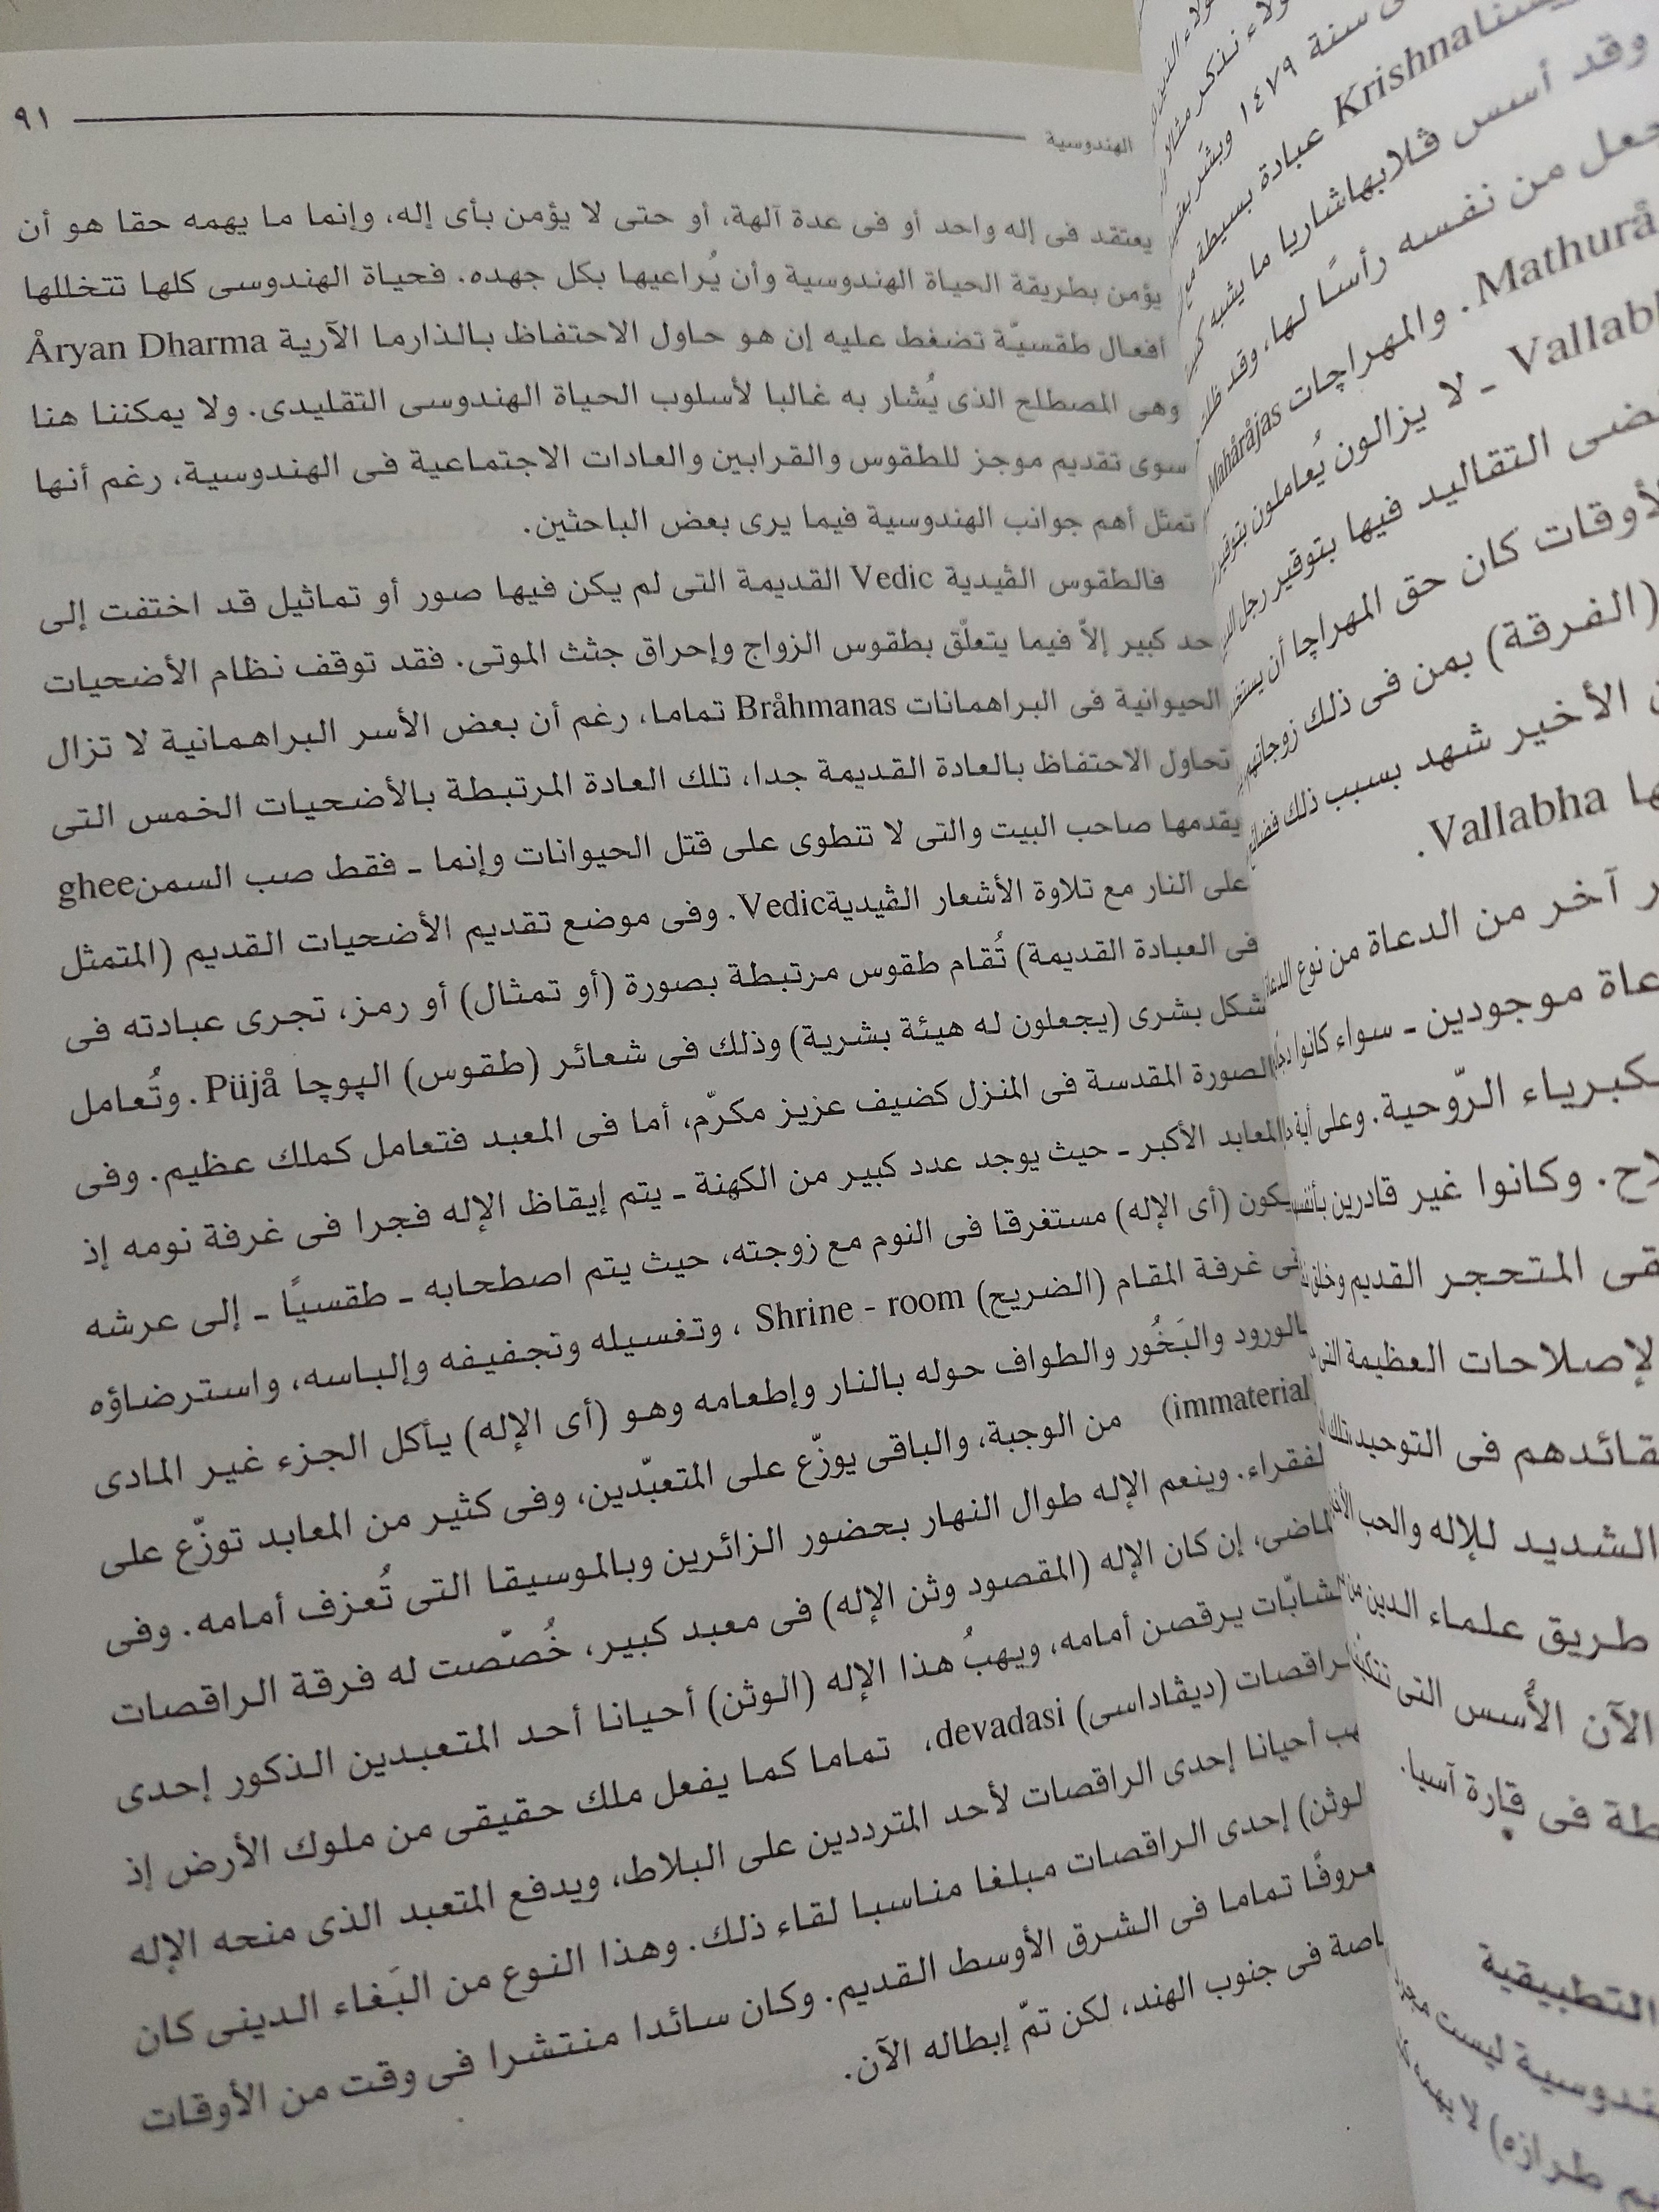 الهندوسية ٩١
يعتقد فى إله واحد أو فى عدة آلهة، أو حتى لا يؤمن بأى إله، وإنما ما يهمه حقا هو أن
يؤمن بطريقة الحياة الهندوسية وأن يُراعيها بكل جهده. فحياة الهندوسى كلها تتخللها
أفعال طقسيّة تضغط عليه إن هو حاول الاحتفاظ بالذارما الآرية Åryan Dharma
وهى المصطلح الذى يُشار به غالبا لأسلوب الحياة الهندوسى التقليدى. ولا يمكننا هنا
سوى تقديم موجز للطقوس والقرابين والعادات الاجتماعية فى الهندوسية، رغم أنها
تمثل أهم جوانب الهندوسية فيما يرى بعض الباحثين.
فالطقوس الڤيدية Vedic القديمة التى لم يكن فيها صور أو تماثيل قد اختفت إلى
حد كبير إلاّ فيما يتعلّق بطقوس الزواج وإحراق جثث الموتى. فقد توقف نظام الأضحيات
الحيوانية فى البراهمانات Bråhmanas تماما، رغم أن بعض الأسر البراهمانية لا تزال
تحاول الاحتفاظ بالعادة القديمة جدا، تلك العادة المرتبطة بالأضحيات الخمس التى
يقدمها صاحب البيت والتى لا تنطوى على قتل الحيوانات وإنما ـ فقط صب السمنghee
على النار مع تلاوة الأشعار الڤيديةVedic. وفى موضع تقديم الأضحيات القديم (المتمثل
فى العبادة القديمة) تُقام طقوس مرتبطة بصورة (أو تمثال) أو رمز، تجرى عبادته فى
شكل بشرى (يجعلون له هيئة بشرية) وذلك فى شعائر (طقوس) الپوچا Püjå. وتُعامل
الصورة المقدسة فى المنزل كضيف عزيز مكرّم، أما فى المعبد فتعامل كملك عظيم. وفى
المعابد الأكبر ـ حيث يوجد عدد كبير من الكهنة ـ يتم إيقاظ الإله فجرا فى غرفة نومه إذ
يكون (أى الإله) مستغرقا فى النوم مع زوجته، حيث يتم اصطحابه ـ طقسياً ـ إلى عرشه
فى غرفة المقام (الضريح) Shrine - room ، وتغسيله وتجفيفه وإلباسه، واسترضاؤه
بالورود والبَخُور والطواف حوله بالنار وإطعامه وهو (أى الإله) يأكل الجزء غير المادى
(immaterial من الوجبة، والباقى يوزّع على المتعبّدين، وفى كثير من المعابد توزّع على
لفقراء. وينعم الإله طوال النهار بحضور الزائرين وبالموسيقا التى تُعزف أمامه. وفى
لماضى، إن كان الإله (المقصود وثن الإله) فى معبد كبير، خُصّصت له فرقة الراقصات
لشابّات يرقصن أمامه، ويهبُ هذا الإله (الوثن) أحيانا أحد المتعبدين الذكور إحدى
لراقصات (ديڤاداسى) devadasi، تماما كما يفعل ملك حقيقى من ملوك الأرض إذ
هب أحيانا إحدى الراقصات لأحد المترددين على البلاط، ويدفع المتعبد الذى منحه الإله
لوثن) إحدى الراقصات مبلغا مناسبا لقاء ذلك. وهذا النوع من البَغاء الدينى كان
عروفًا تماما فى الشرق الأوسط القديم. وكان سائدا منتشرا فى وقت من الأوقات
اصة فى جنوب الهند، لكن تمّ إبطاله الآن.
سنة ١٤٧٩
Krishna عبادة بسيطة مع
وقد أسس ڤلابهاشاريا ما يشبه
جعل من نفسه رأسًا لها، وقد
Mathurå. والمهراچات Mahåråjas
ـ لا يزالون يُعاملون
التقاليد فيها بتوقير رجل
كان حق المهراچا أن
(الفرقة) بمن فى ذلك زوجاتهم
الأخير شهد بسبب ذلك
Vallabha.
آخر من الدعاة من نوع
موجودين ـ سواء كانوا
الرّوحية. وعلى أية
وكانوا غير قادرين
المتحجر القديم
لإصلاحات العظيمة
فى التوحيد
الشديد للإله والحب
طريق علماء الدين
الآن الأُسس التى
فى قارة آسيا.
التطبيقية
ليست
طرازه) لا